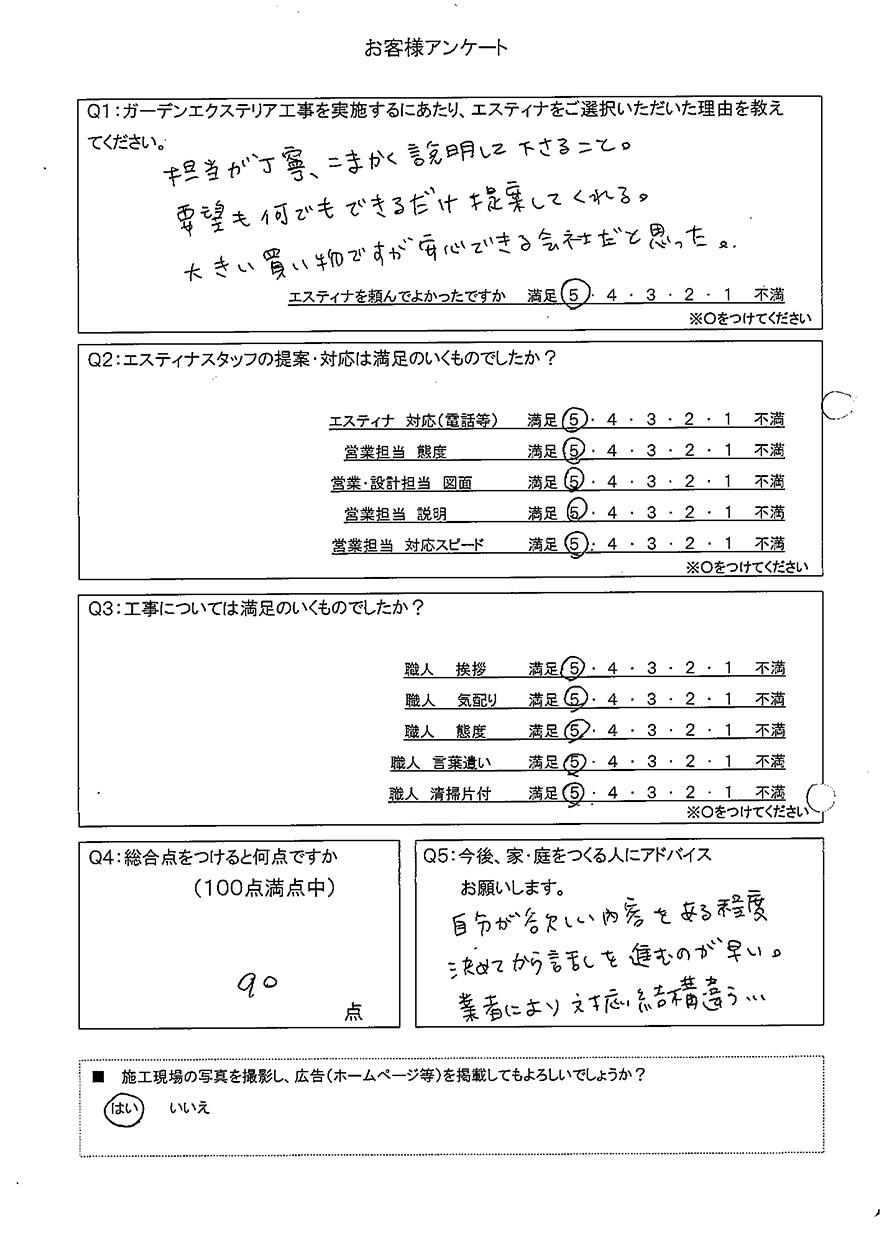 お客様アンケート
Q1：ガーデンエクステリア工事を実施するにあたり、エスティナをご選択いただいた理由を教え
てください。
担当が丁寧、こまかく説明して下さること。
要望も何でもできるだけ提案してくれる。
大きい買い物ですが安心できる会社だと思った。
エスティナを頼んでよかったですか　満足 5・4・3・2・1　不満
※〇をつけてください
Q2：エスティナスタッフの提案・対応は満足のいくものでしたか？
エスティナ　対応（電話等）　満足 5・4・3・2・1　不満
営業担当　態度　満足 5・4・3・2・1　不満
営業・設計担当　図面　満足 5・4・3・2・1　不満
営業担当　説明　満足 5・4・3・2・1　不満
営業担当　対応スピード　満足 5・4・3・2・1　不満
※〇をつけてください
Q3：工事については満足のいくものでしたか？
職人　挨拶　満足 5・4・3・2・1　不満
職人　気配り　満足 5・4・3・2・1　不満
職人　態度　満足 5・4・3・2・1　不満
職人　言葉遣い　満足 5・4・3・2・1　不満
職人　清掃片付　満足 5・4・3・2・1　不満
※〇をつけてください
Q4：総合点をつけると何点ですか
（100点満点中）
90
点
Q5：今後、家・庭をつくる人にアドバイス
お願いします。
自分が欲しい内容をある程度
決めてから話しを進むのが早い。
業者により対応結構違う…
■　施工現場の写真を撮影し、広告（ホームページ等）を掲載してもよろしいでしょうか？
はい　いいえ